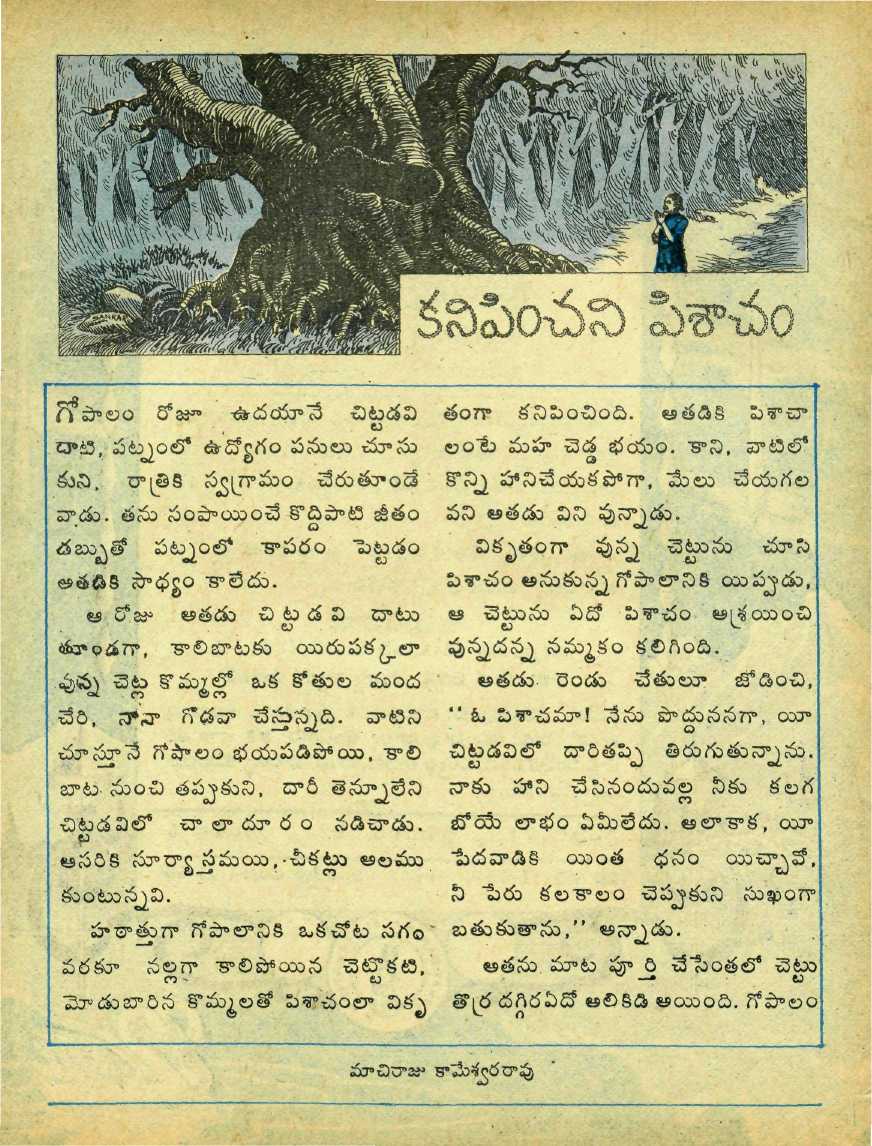 SANKAR
కనిపించని పిశాచం
గోపాలం రోజూ ఉదయానే చిట్టడవి
దాటి, పట్నంలో ఉద్యోగం పనులు చూసు
కుని, రాత్రికి స్వగ్రామం చేరుతూండే
వాడు. తను సంపాయించే కొద్దిపాటి జీతం
డబ్బుతో పట్నంలో కాపరం పెట్టడం
అతడికి సాధ్యం కాలేదు.
ఆ రోజు అతడు చిట్టడవి దాటు
తూండగా, కాలిబాటకు యిరుపక్కలా
వున్న చెట్ల కొమ్మల్లో ఒక కోతుల మంద
చేరి, నానా గొడవా చేస్తున్నది. వాటిని
చూస్తూనే గోపాలం భయపడిపోయి, కాలి
బాట నుంచి తప్పుకుని, దారీ తెన్నూలేని
చిట్టడవిలో చాలా దూరం నడిచాడు.
ఆసరికి సూర్యాస్తమయి, చీకట్లు అలము
కుంటున్నవి.
హఠాత్తుగా గోపాలానికి ఒకచోట సగం
వరకూ నల్లగా కాలిపోయిన చెట్టొకటి,
మోడుబారిన కొమ్మలతో పిశాచంలా వికృ
తంగా కనిపించింది. అతడికి పిశాచా
లంటే మహ చెడ్డ భయం. కాని, వాటిలో
కొన్ని హానిచేయకపోగా, మేలు చేయగల
వని అతడు విని వున్నాడు.
వికృతంగా వున్న చెట్టును చూసి
పిశాచం అనుకున్న గోపాలానికి యిప్పుడు,
ఆ చెట్టును ఏదో పిశాచం ఆశ్రయించి
వున్నదన్న నమ్మకం కలిగింది.
అతడు రెండు చేతులూ జోడించి,
‘‘ఓ పిశాచమా! నేను పొద్దుననగా, యీ
చిట్టడవిలో దారితప్పి తిరుగుతున్నాను.
నాకు హాని చేసినందువల్ల నీకు కలగ
బోయే లాభం ఏమీలేదు. అలాకాక, యీ
పేదవాడికి యింత ధనం యిచ్చావో,
నీ పేరు కలకాలం చెప్పుకుని సుఖంగా
బతుకుతాను,’’ అన్నాడు.
అతను మాట పూర్తి చేసేంతలో చెట్టు
తొర్ర దగ్గిరఏదో అలికిడి అయింది. గోపాలం
మాచిరాజు కామేశ్వరరావు